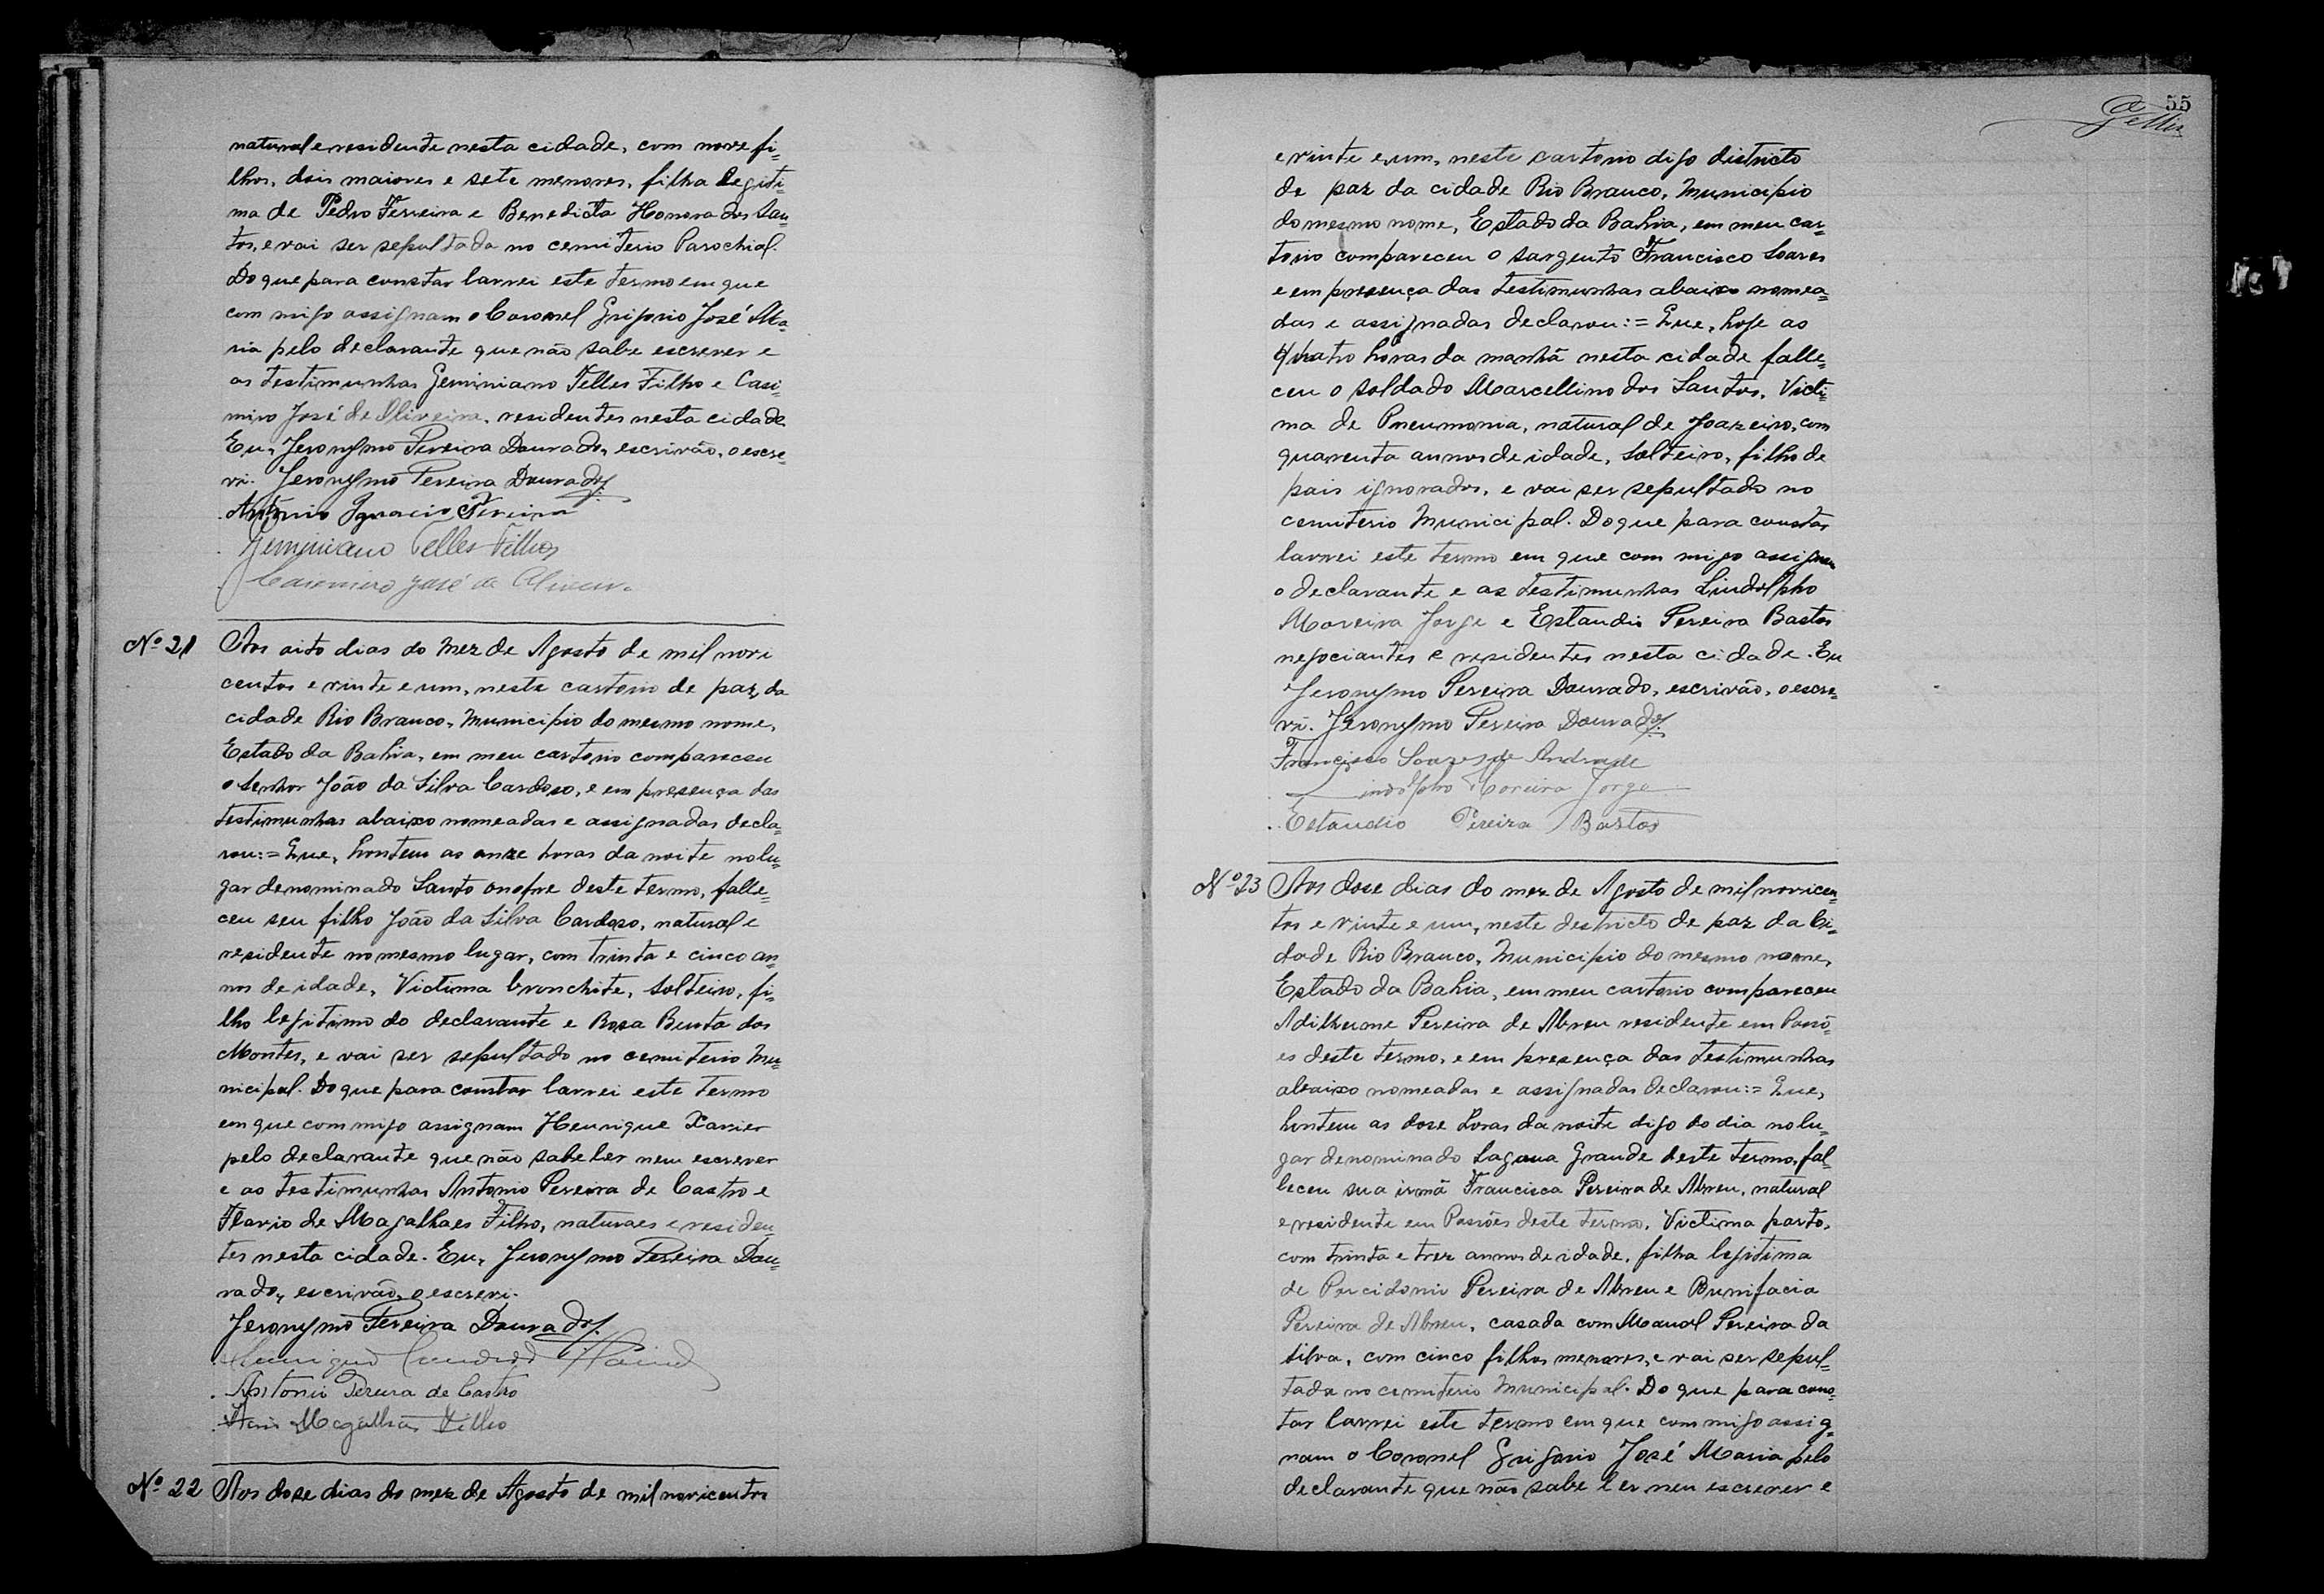 natural e residente nesta cidade, com nove fi-
lhos, dois maiores e sete menores, filha legiti-
ma de Pedro Ferreira e Benedicta Honora dos San-
tos, e vai ser sepultada no cemiterio Parochial.
Do que para constar lavrei este termo em que
com migo assignam o Coronel Grigorio José Ma-
ria pelo declarante que não sabe escrever e
as testimunhas Geminiano Telles Filho e Casi-
miro José de Oliveira, residentes nesta cidade
Eu, Jeronymo Pereira Dourado, escrivão, o escre-
vi. Jeronymo Pereira Dourado
Antonio Ignacio Pereira
Geminiano Telles Filho
Casemiro José de Oliveira
Nº 21 Aos oito dias do mez de Agosto de mil novi
centos e vinte e um, neste cartorio de paz, da
cidade Rio Branco, Municipio do mesmo nome,
Estado da Bahia, em meu cartorio compareceu
o senhor João da Silva Cardoso, e em presença das
testimunhas abaixo nomeadas e assignadas decla-
rou:= Que, hontem as onze horas da noite no lu-
gar denominado Santo onofre deste termo, falle-
ceu seu filho João da Silva Cardoso, natural e
residente no mesmo lugar, com trinta e cinco an-
nos de idade, Victima bronchite, solteiro, fi-
lho legitimo do declarante e Rosa Benta dos
Montes, e vai ser sepultado no cemiterio Mu-
nicipal. Do que para constar lavrei este termo
em que com migo assignam Henrique Xavier
pelo declarante que não sabe ler nem escrever
e as testimunhas Antonio Pereira de Castro e
Flavio de Magalhaes Filho, naturaes e residen-
tes nesta cidade. Eu, Jeronymo Pereira Dou-
rado, escrivão, o escrevi.
Jeronymo Pereira Dourado
Henrique
Antonio Pereira de Castro
Magalhães Filho
Nº 22 Aos dose dias do mez de Agosto de mil novicentos
55
Telles
e vinte e um, neste cartorio digo districto
de paz da cidade Rio Branco, Municipio
do mesmo nome, Estado da Bahia, em meu car-
torio compareceu o sargento Francisco Soares
e em presença das testimunhas abaixo nomea-
das e assignadas declarou:= Que, hoje as
quatro horas da manhã nesta cidade falle-
ceu o soldado Marcellino dos Santos, Victi-
ma de Pneumonia, natural de Joazeiro, com
quarenta annos de idade, solteiro, filho de
pais ignorados, e vai ser sepultado no
cemiterio Municipal. Do que para constar
lavrei este termo em que com migo assignam
o declarante e as testimunhas Lindolpho
Moreira Jorge e Estaudio Pereira Bastos
negociantes e residentes nesta cidade. Eu
Jeronymo Pereira Dourado, escrivão, o escre-
vi. Jeronymo Pereira Dourado
Francisco Soares de Andrade
Lindolpho Moreira Jorge
Estaudio Pereira Bastos
Nº 23 Aos dose dias do mez de Agosto de mil novicen-
tos e vinte e um, neste destricto de paz da Ci-
dade Rio Branco, Municipio do mesmo nome,
Estado da Bahia, em meu cartorio compareceu
Adilherme Pereira de Abreu residente em Passõ-
es deste termo, e em presença das testimunhas
abaixo nomeadas e assignadas declarou:= Que,
hontem as doze horas da noite digo do dia no lu-
gar denominado Lagoua Grande deste termo, fal-
leceu sua irmã Francisca Pereira de Abreu, natural
e residente em Passões deste termo, Victima parto,
com trinta e trez annos de idade, filha legitima
de Porcidonio Pereira de Abreu e Bunifacia
Pereira de Abreu, casada com Manoel Pereira da
Silva, com cinco filhos menores, e vai ser sepul-
tada no cemiterio Municipal. Do que para cons-
tar lavrei este termo em que com migo assig-
nam o Coronel Grigorio José Maria pelo
declarante que não sabe ler nem escrever e